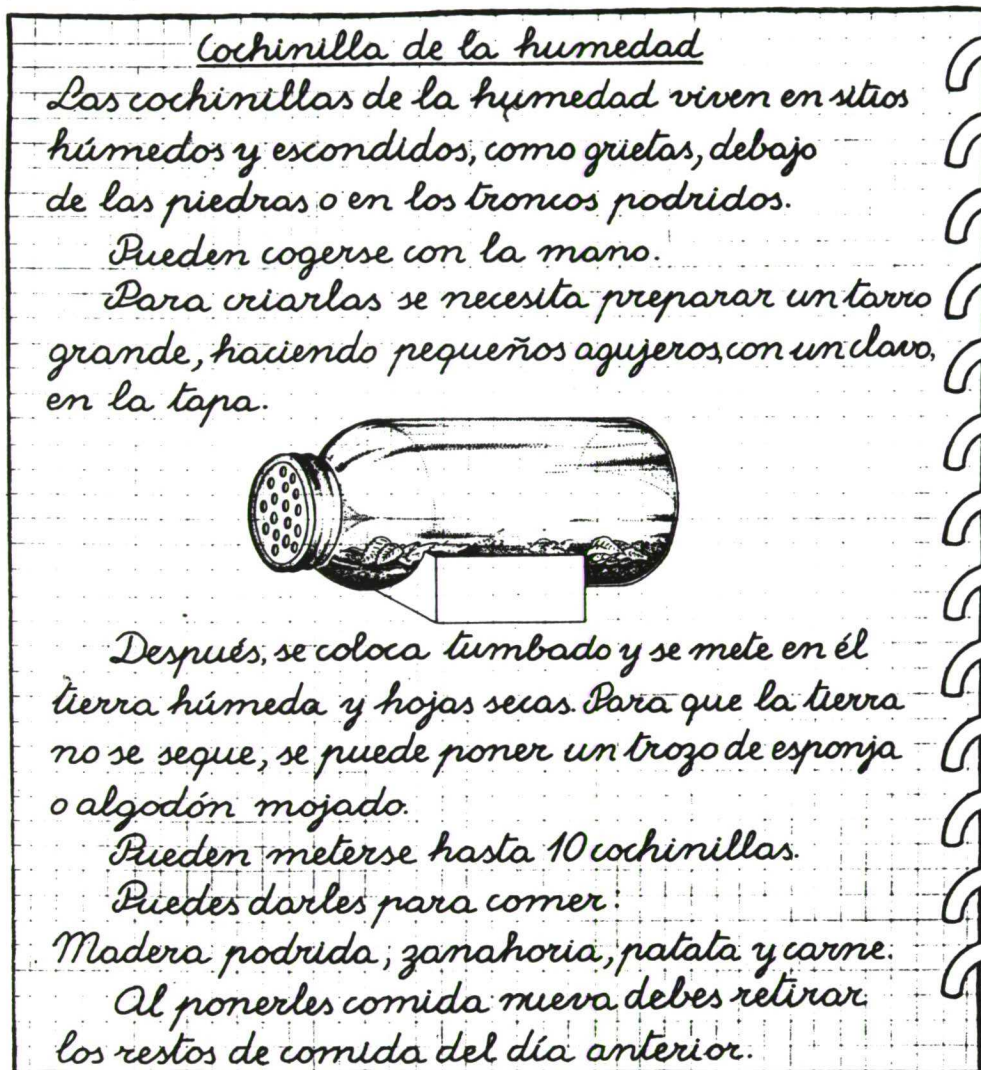 Cochinilla de la humedad
Las cochinillas de la humedad viven en sitios
húmedos y escondidos, como grietas, debajo
de las piedras o en los troncos podridos.
Pueden cogerse con la mano.
Para criarlas se necesita preparar un tarro
grande, haciendo pequeños agujeros, con un clavo,
en la tapa.
Después, se coloca tumbado y se mete en él
tierra húmeda y hojas secas. Para que la tierra
no se seque, se puede poner un trozo de esponja
o algodón mojado.
Pueden meterse hasta 10 cochinillas.
Puedes darles para comer:
Madera podrida, zanahoria, patata y carne.
Al ponerles comida nueva debes retirar
los restos de comida del día anterior.